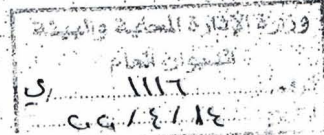 وزارة الإدارة المحلية والبيئة
الديوان العام
١١١٦ /ي
١٤ / ٤ / ٢٢